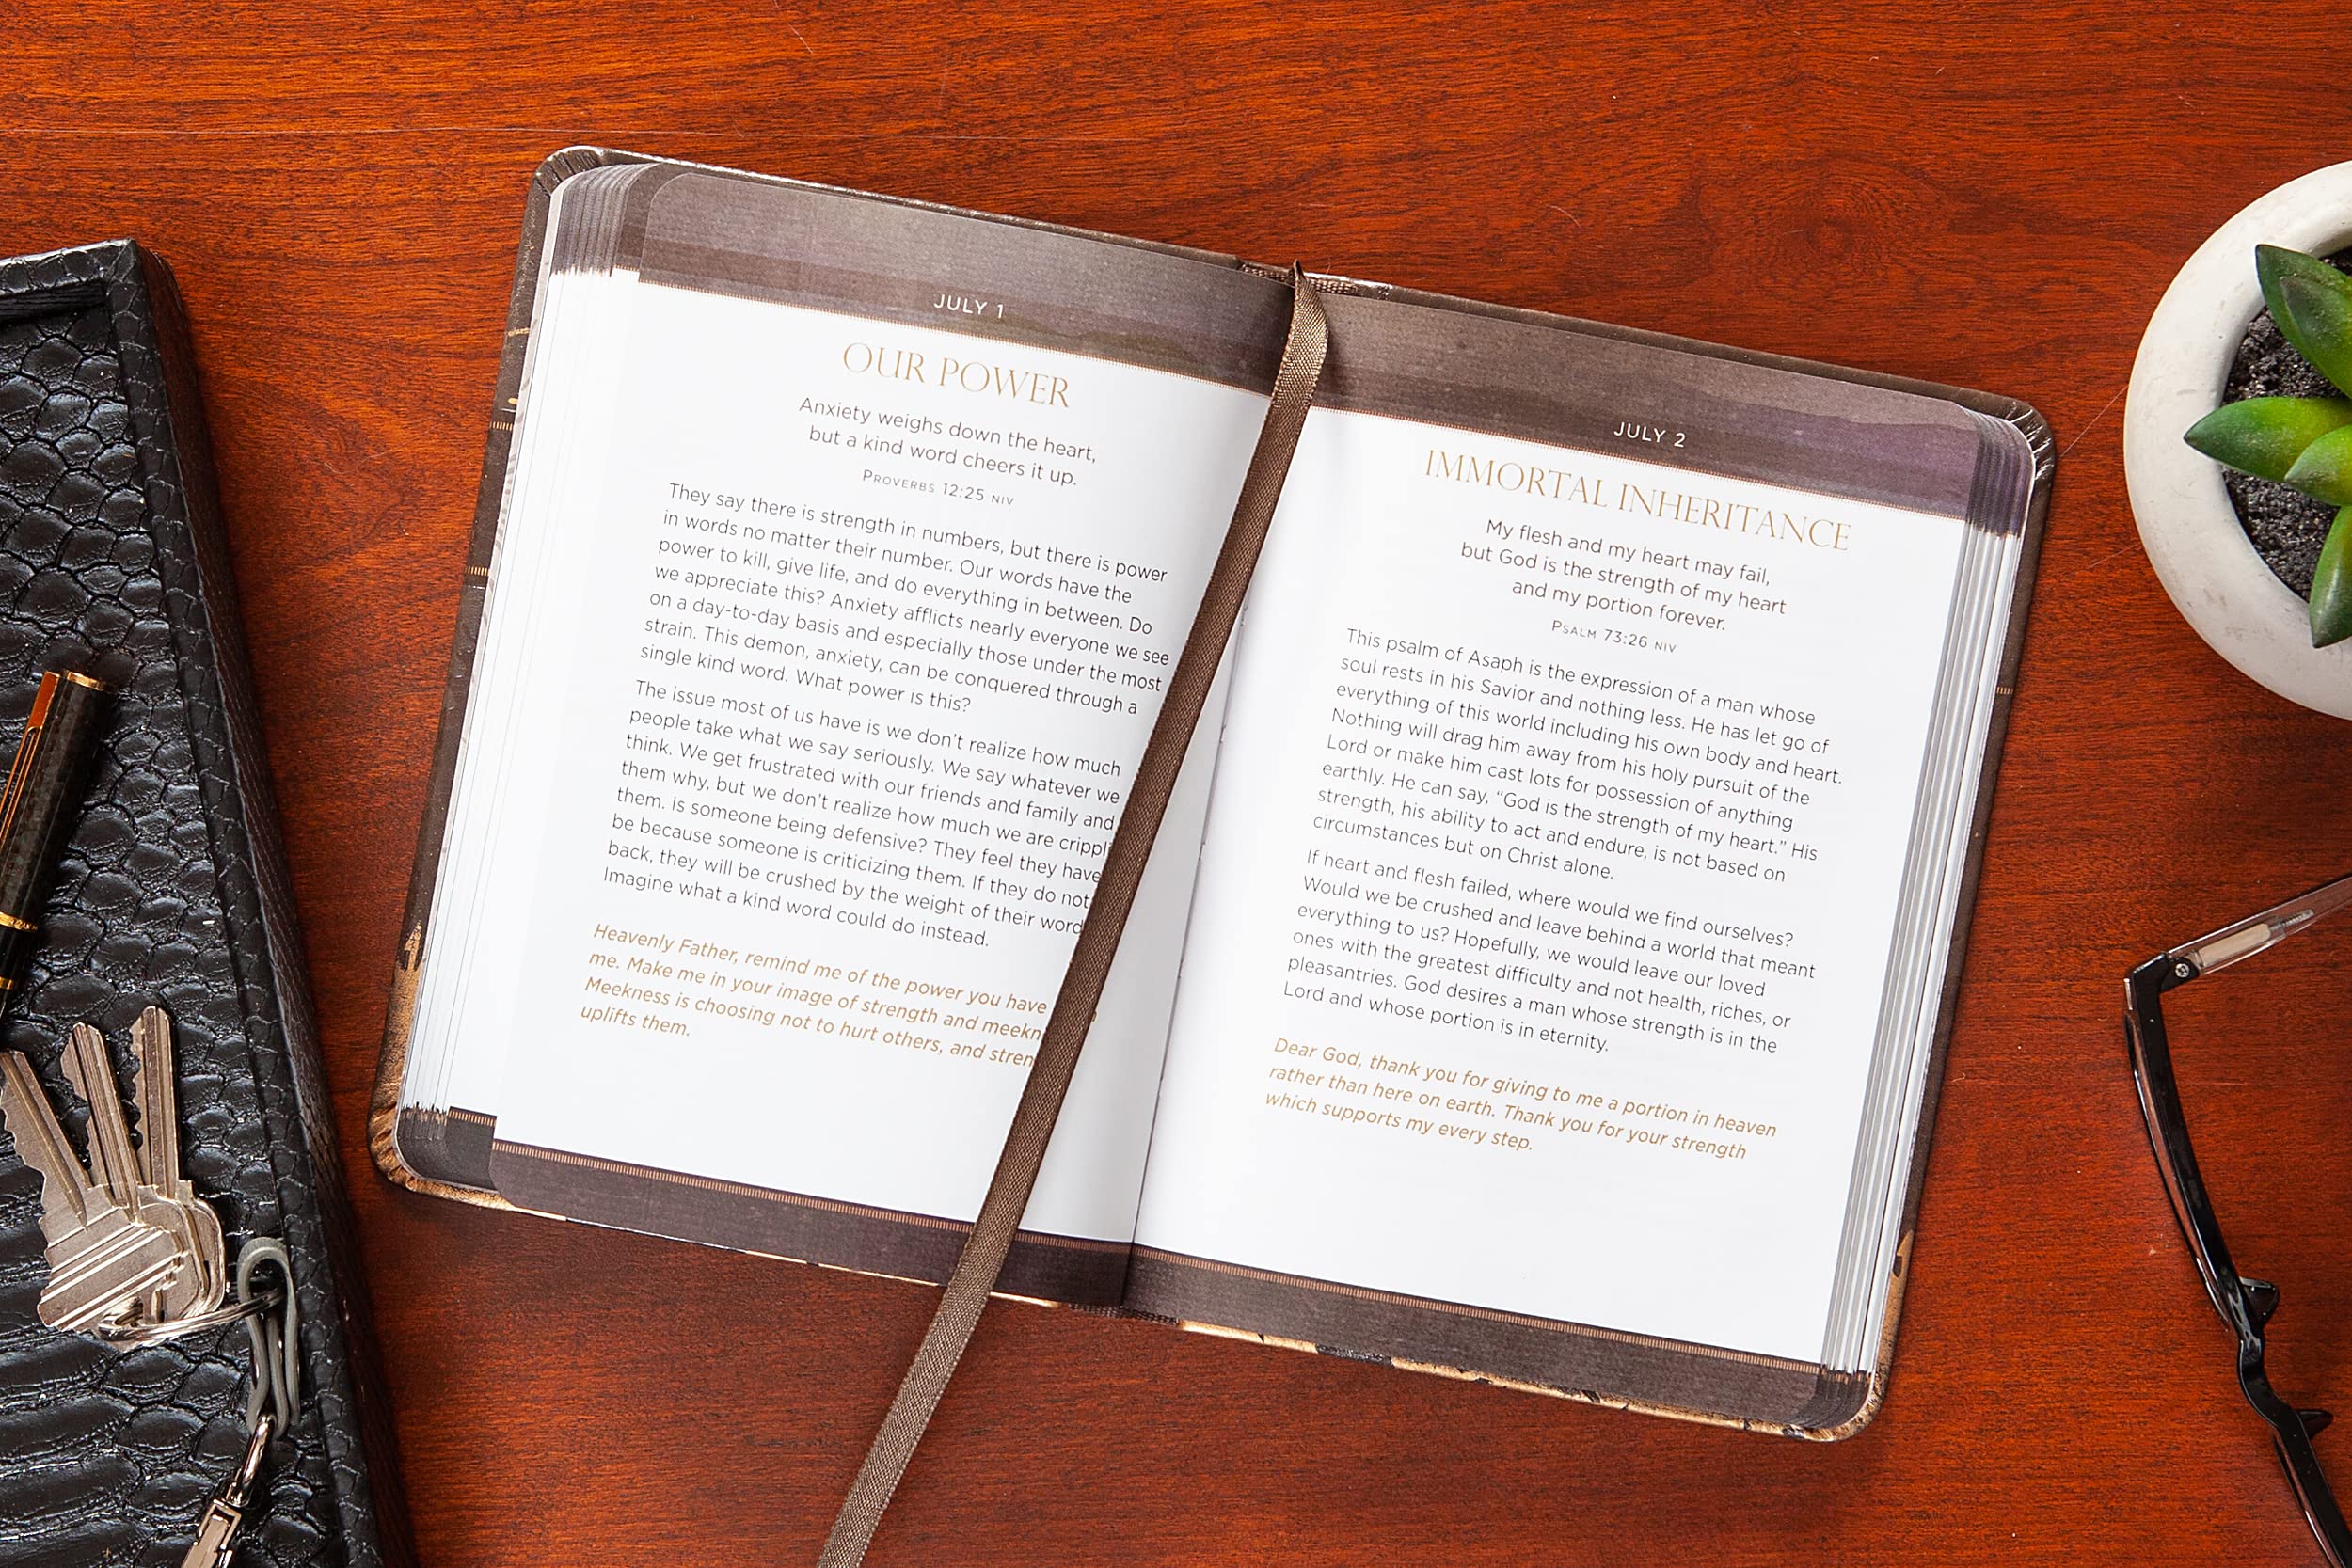 JULY 1
OUR POWER
Anxiety weighs down the heart,
but a kind word cheers it up.
Proverbs 12:25 NIV
They say there is strength in numbers, but there is power
in words no matter their number. Our words have the
power to kill, give life, and do everything in between. Do
we appreciate this? Anxiety afflicts nearly everyone we see
on a day-to-day basis and especially those under the most
strain. This demon, anxiety, can be conquered through a
single kind word. What power is this?
The issue most of us have is we don't realize how much
people take what we say seriously. We say whatever we
think. We get frustrated with our friends and family and
them why, but we don't realize how much we are crippli
them. Is someone being defensive? They feel they have
be because someone is criticizing them. If they do not
back, they will be crushed by the weight of their word
Imagine what a kind word could do instead.
Heavenly Father, remind me of the power you have
me. Make me in your image of strength and meekn
Meekness is choosing not to hurt others, and stren
uplifts them.
JULY 2
IMMORTAL INHERITANCE
My flesh and my heart may fail,
but God is the strength of my heart
and my portion forever.
Psalm 73:26 NIV
This psalm of Asaph is the expression of a man whose
soul rests in his Savior and nothing less. He has let go of
everything of this world including his own body and heart.
Nothing will drag him away from his holy pursuit of the
Lord or make him cast lots for possession of anything
earthly. He can say, “God is the strength of my heart.” His
strength, his ability to act and endure, is not based on
circumstances but on Christ alone.
If heart and flesh failed, where would we find ourselves?
Would we be crushed and leave behind a world that meant
everything to us? Hopefully, we would leave our loved
ones with the greatest difficulty and not health, riches, or
pleasantries. God desires a man whose strength is in the
Lord and whose portion is in eternity.
Dear God, thank you for giving to me a portion in heaven
rather than here on earth. Thank you for your strength
which supports my every step.